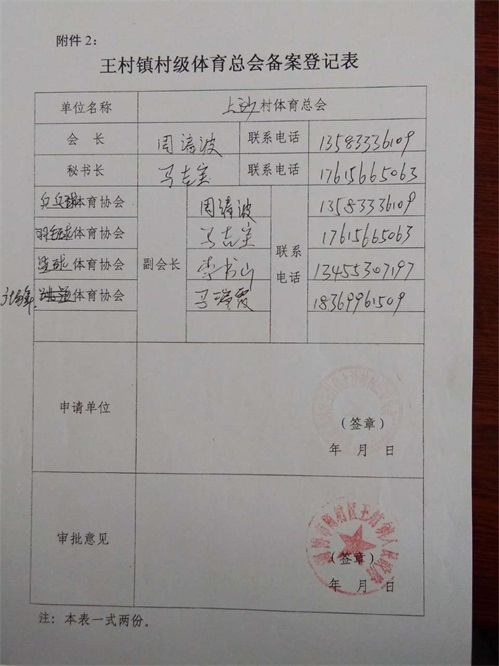 附件2：
王村镇村级体育总会备案登记表
单位名称 上沙村体育总会
会 长 周清波 联系电话 13583336109
秘书长 马志宝 联系电话 17615665063
乒乓球体育协会 周清波 13583336109
羽毛球体育协会 马志宝 17615665063
篮球体育协会 副会长 李书山 联系电话 13455307197
体育协会 马瑞霞 18369961509
申请单位
（签章）
年 月 日
审批意见
（签章）
年 月 日
注：本表一式两份。